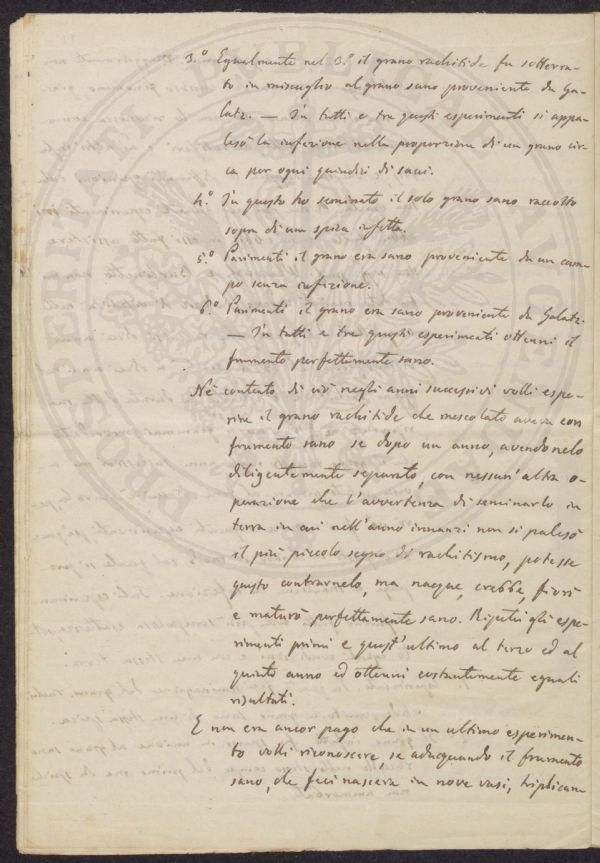 3.º Egualmente nel 3.º il grano rachitide fu sotterra-
to in miscuglio al grano sano proveniente da Ga-
latz. — In tutti e tre questi esperimenti si appa-
lesò la infezione nella proporzione di un grano cir-
ca per ogni quindici di sani.
4.º In questo ho seminato il solo grano sano raccolto
sopra di una spica infetta.
5.º Parimenti il grano era sano proveniente da un cam-
po senza infezione.
6.º Parimenti il grano era sano proveniente da Galatz.
— In tutti e tre questi esperimenti ottenni il
frumento perfettamente sano.
Nè contento di ciò negli anni successivi volli espe-
rire il grano rachitide che mescolato aveva con
frumento sano se dopo un anno, avendonelo
diligentemente separato, con nessun'altra o-
perazione che l'avvertenza di seminarlo in
terra in cui nell'anno innanzi non si palesò
il più piccolo segno di rachitismo, potesse
questo contrarnelo, ma nacque, crebbe, fiorì
e maturò perfettamente sano. Ripetei gli espe-
rimenti primi e quest'ultimo al terzo ed al
quinto anno ed ottenni costantemente eguali
risultati.
E non era ancor pago che in un ultimo esperimen-
to volli riconoscere, se adacquando il frumento
sano, che feci nascere in nove vasi, triplican-